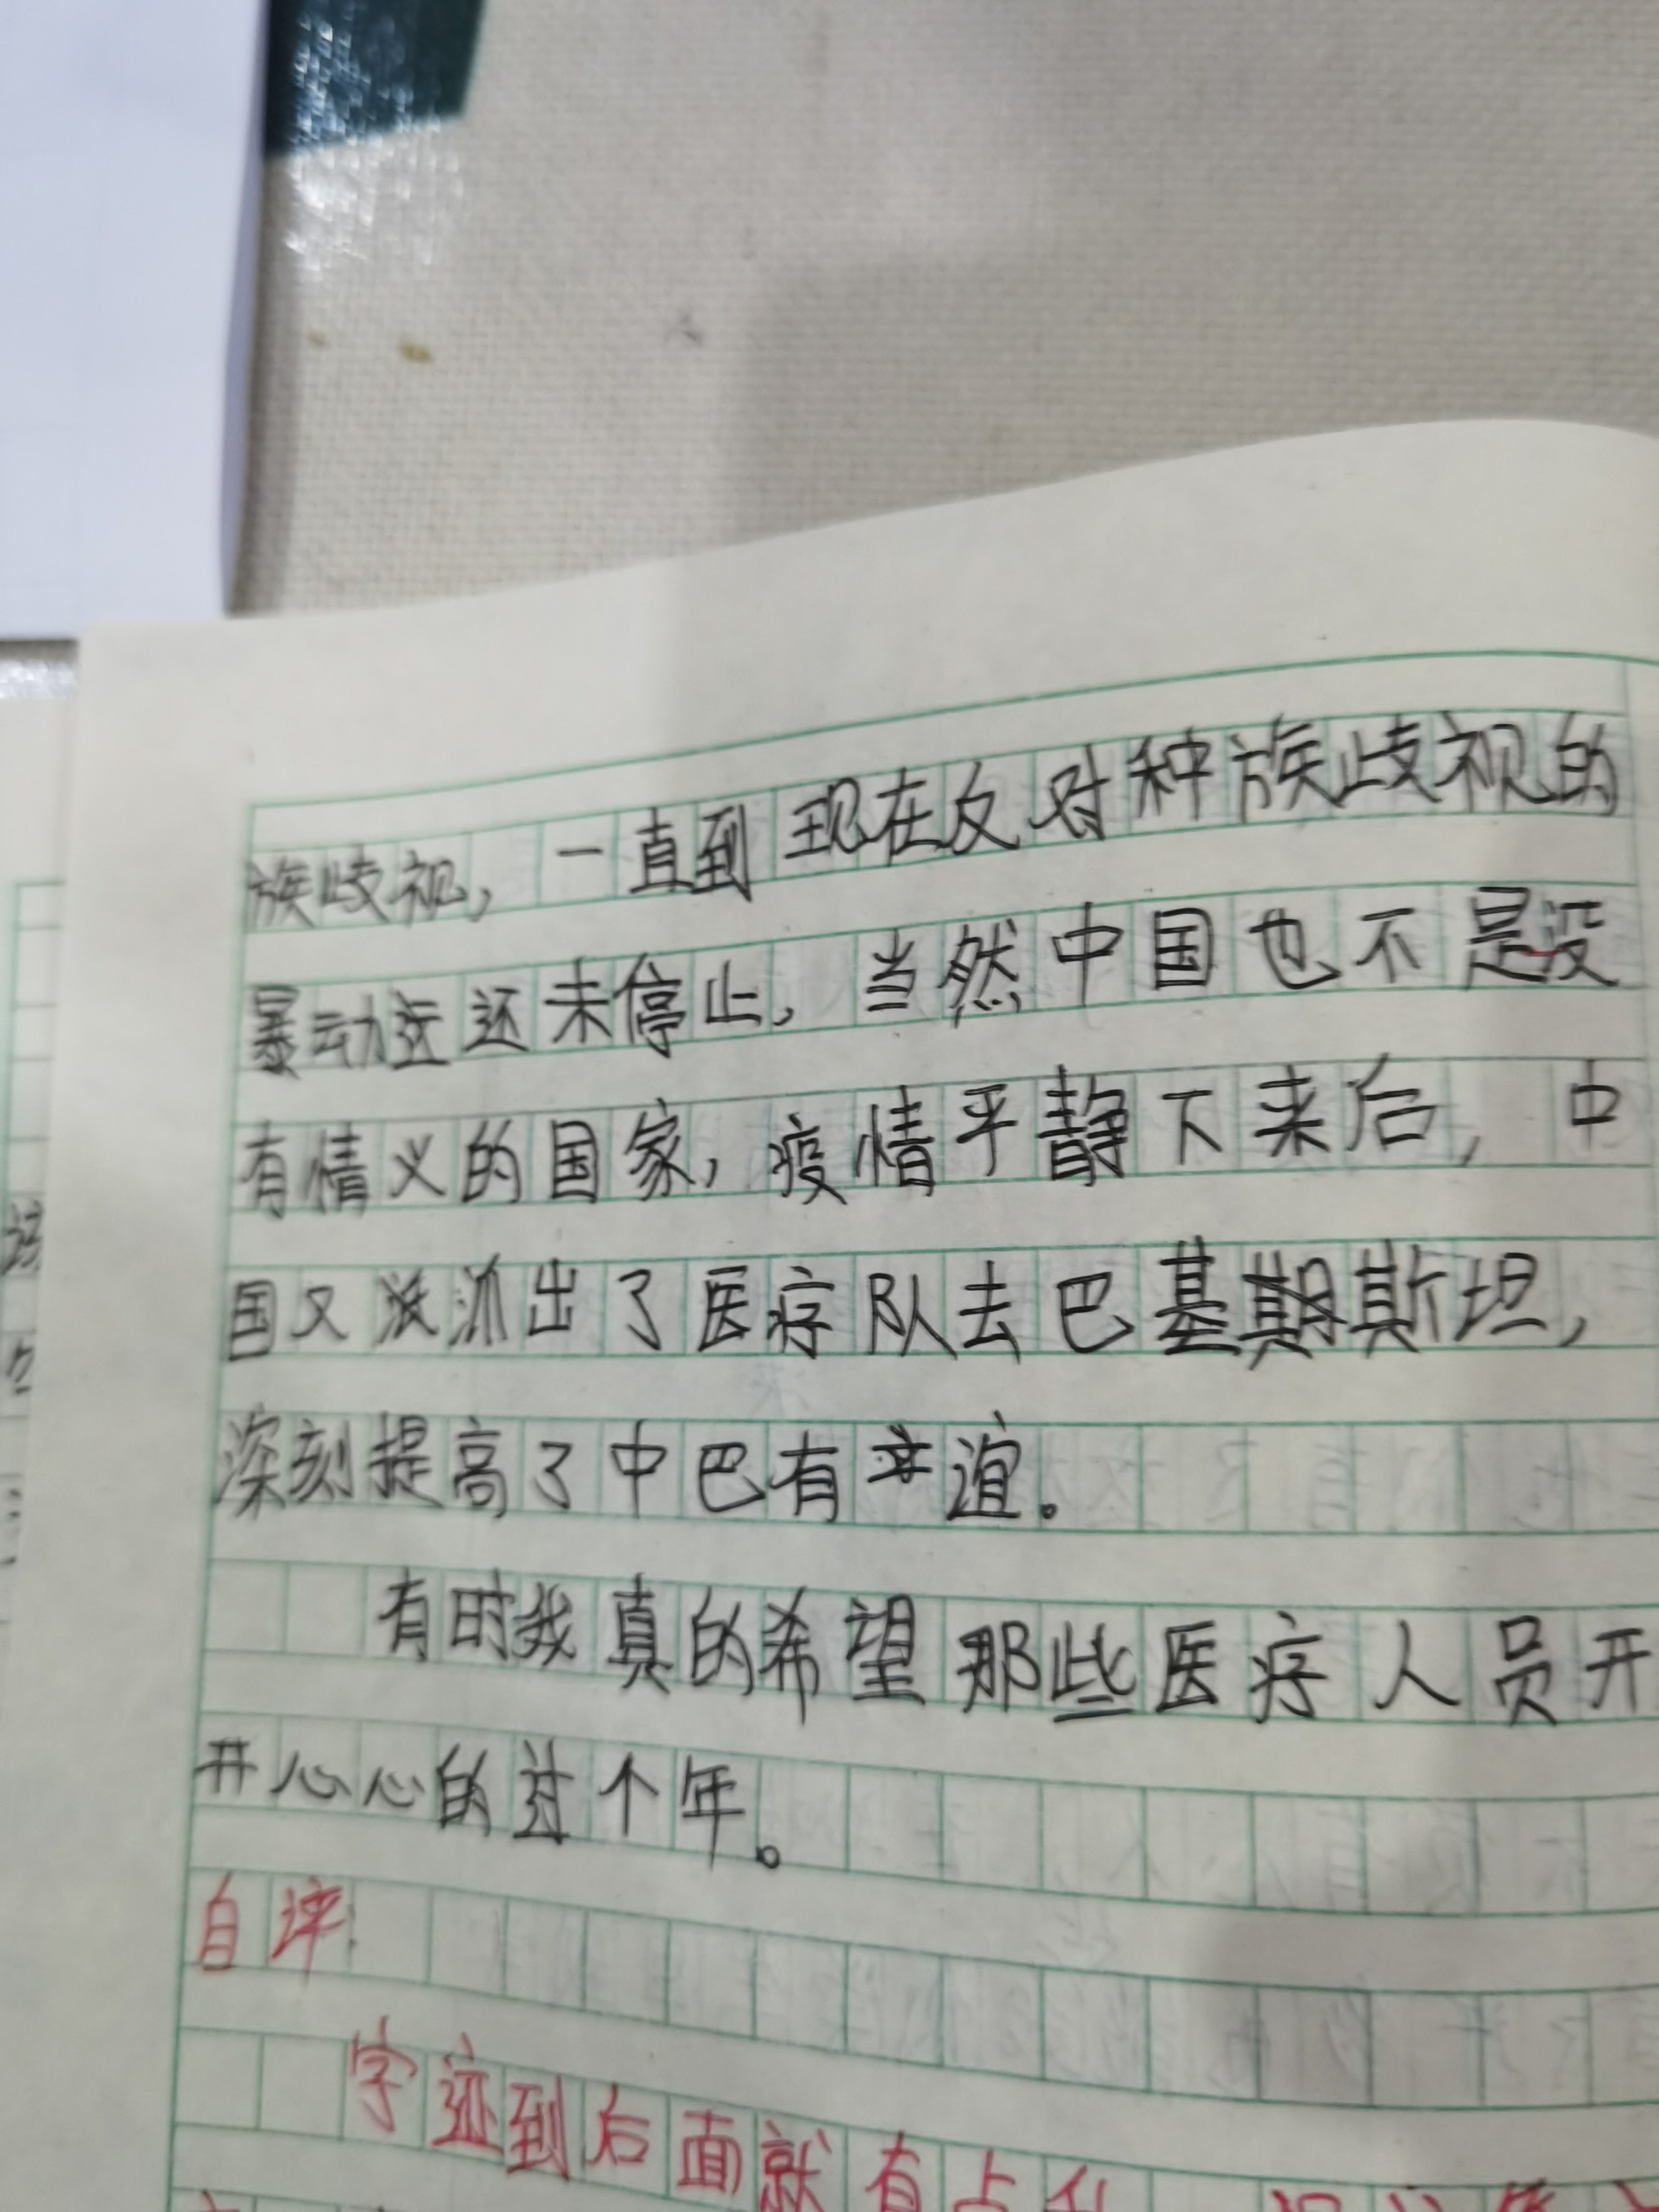 族歧视，一直到现在反对种族歧视的
暴动还未停止，当然中国也不是没
有情义的国家，疫情平静下来后，中
国又派出了医疗队去巴基斯坦，
深刻提高了中巴有谊。
有时我真的希望那些医疗人员开
开心心的过个年。
自评:
字迹到后面就有点乱